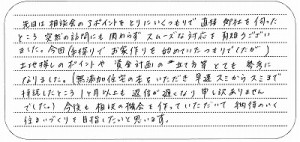 先日は相談会の3ポイントをとりにいくつもりで直接御社を伺った
ところ突然の訪問にも関わらずスムーズな対応を有難うござい
ました。今回(年播りでお家作りを始めていたつもりでしたが)
土地探しのポイントや資金計画の立て方等とても参考に
なりました。(無添加住宅の本をいただき早速スミからスミまで
拝読したところ1ヶ月以上も返信が遅くなり申し訳ありません
でした。)今後も相談の機会を作っていただいて納得のいく
住まいづくりを目指したいと思います。